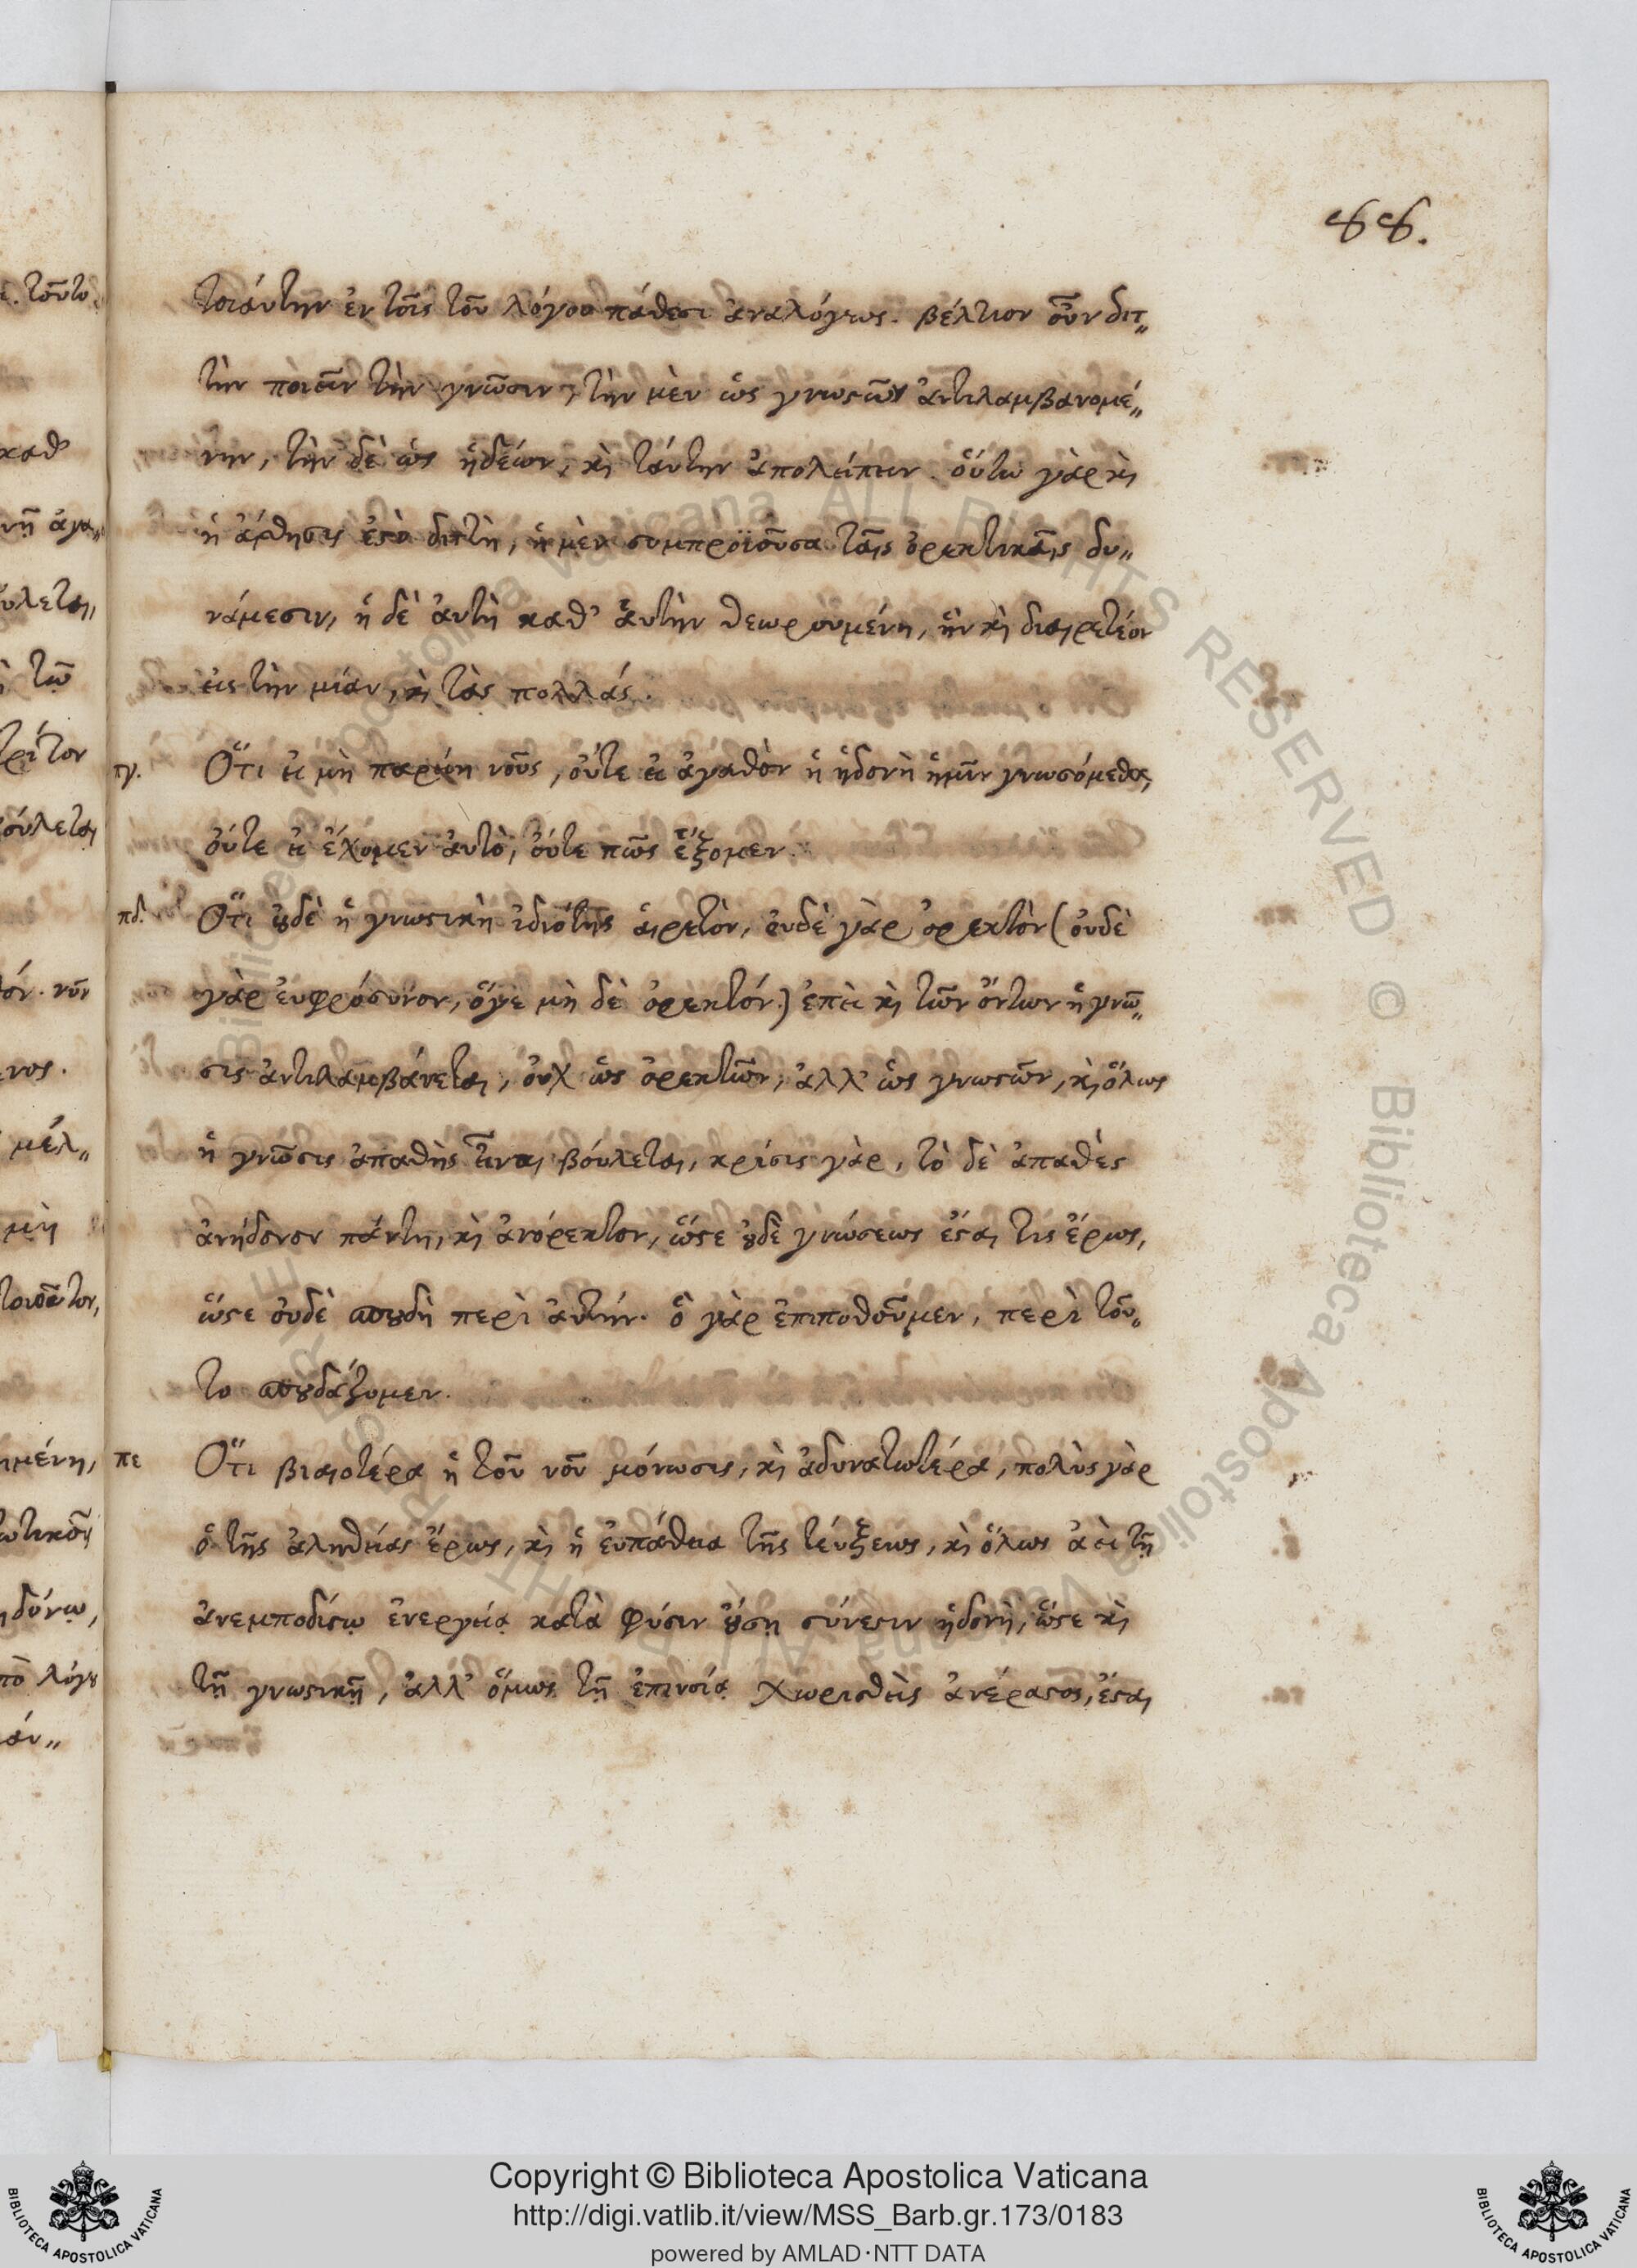 88.
τοιάυτην ἐν τοῖς τοῦ λόγου πάθεσι ἀναλόγως. βέλτιον οὖν διτ„
τὴν ποιεῖν τὴν γνῶσιν, τὴν μὲν ὡς γνωςῶν ἀντιλαμβανομέ„
νην, τὴν δὲ ὡς ἡδέων, κὶ τάυτην ἀπολείπειν. ὅυτω γὰρ κὶ
ἡ ἄισθησις ἐςὶ διττὴ, ἡ μὲν συμπροϊοῦσα ταῖς ὀρεκτικαῖς δυ„
νάμεσιν, ἡ δὲ ἀυτὴ καθ' ἁυτὴν θεωρουμένη, ἣν κὶ διαιρετέον
εἰς τὴν μίαν, κὶ τὰς πολλάς.
πγ. Ὅτι εἰ μὴ παρείη νοῦς, ὄυτε εἰ ἀγαθὸν ἡ ἡδονὴ ἡμῖν γνωσόμεθα,
ὄυτε εἰ ἔχομεν ἀυτὸ, ὄυτε πῶς ἕξομεν.
πδ. Ὅτι ȣδὲ ἡ γνωςικὴ ἰδιότης ἁιρετὸν, ὀυδὲ γὰρ ὀρεκτὸν (ὀυδὲ
γὰρ ἐυφρόσυνον, ὅγε μὴ δὲ ὀρεκτόν.) ἐπεὶ κὶ τῶν ὄντων ἡ γνῶ„
σις ἀντιλαμβάνεται, ὀυχ ὡς ὀρεκτῶν, ἀλλ' ὡς γνωςῶν, κὶ ὅλως
ἡ γνῶσις ἀπαθὴς εἶναι βόυλεται, κρίσις γὰρ, τὸ δὲ ἀπαθὲς
ἀνήδονον πάντη, κὶ ἀνόρεκτον, ὥςε ȣδὲ γνώσεως ἔςαι τὶς ἔρως,
ὥςε ὀυδὲ σπȣδὴ περὶ ἀυτήν. ὃ γὰρ ἐπιποθοῦμεν, περὶ τοῦ„
το σπȣδάζομεν.
πε Ὅτι βιαιοτέρα ἡ τοῦ νοῦ μόνωσις, κὶ ἀδυνατωτέρα, πολὺς γὰρ
ὁ τῆς ἀληθείας ἔρως, κὶ ἡ ἐυπάθεια τῆς τέυξεως, κὶ ὅλως ἀεὶ τῇ
ἀνεμποδίςῳ ἐνεργείᾳ κατὰ φύσιν ȣσῃ σύνεςιν ἡδονὴ, ὥςε κὶ
τῇ γνωςικῇ, ἀλλ' ὅμως τῇ ἐπινοίᾳ χωρισθεὶς ἀνέραςος, ἔςαι
Copyright © Biblioteca Apostolica Vaticana
http://digi.vatlib.it/view/MSS_Barb.gr.173/0183
powered by AMLAD·NTT DATA